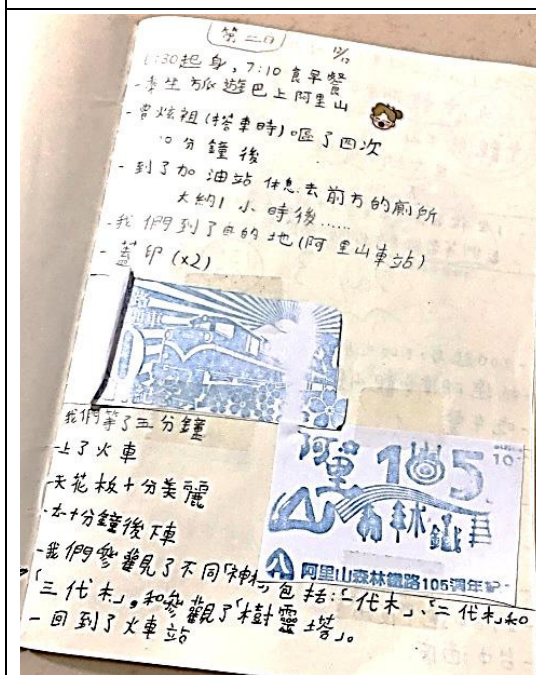 第二日
12/12
6:30起身,7:10食早餐
-乘坐旅遊巴上阿里山
-曾炫祖(搭車時)嘔了四次
分鐘後
-到了加油站休息去前方的廁所
大約1小時後……
-我們到了目的地(阿里山車站)
-蓋印(x2)
我們等了五分鐘
-上了火車
-天花板十分美麗
十分鐘後下車
-我們參觀了不同「神木」包括:「一代木」、「二代木」和
「三代木」,和參觀了「樹靈塔」。
-回到了火車站
阿里 105
山森林鐵路
阿里山森林鐵路105週年